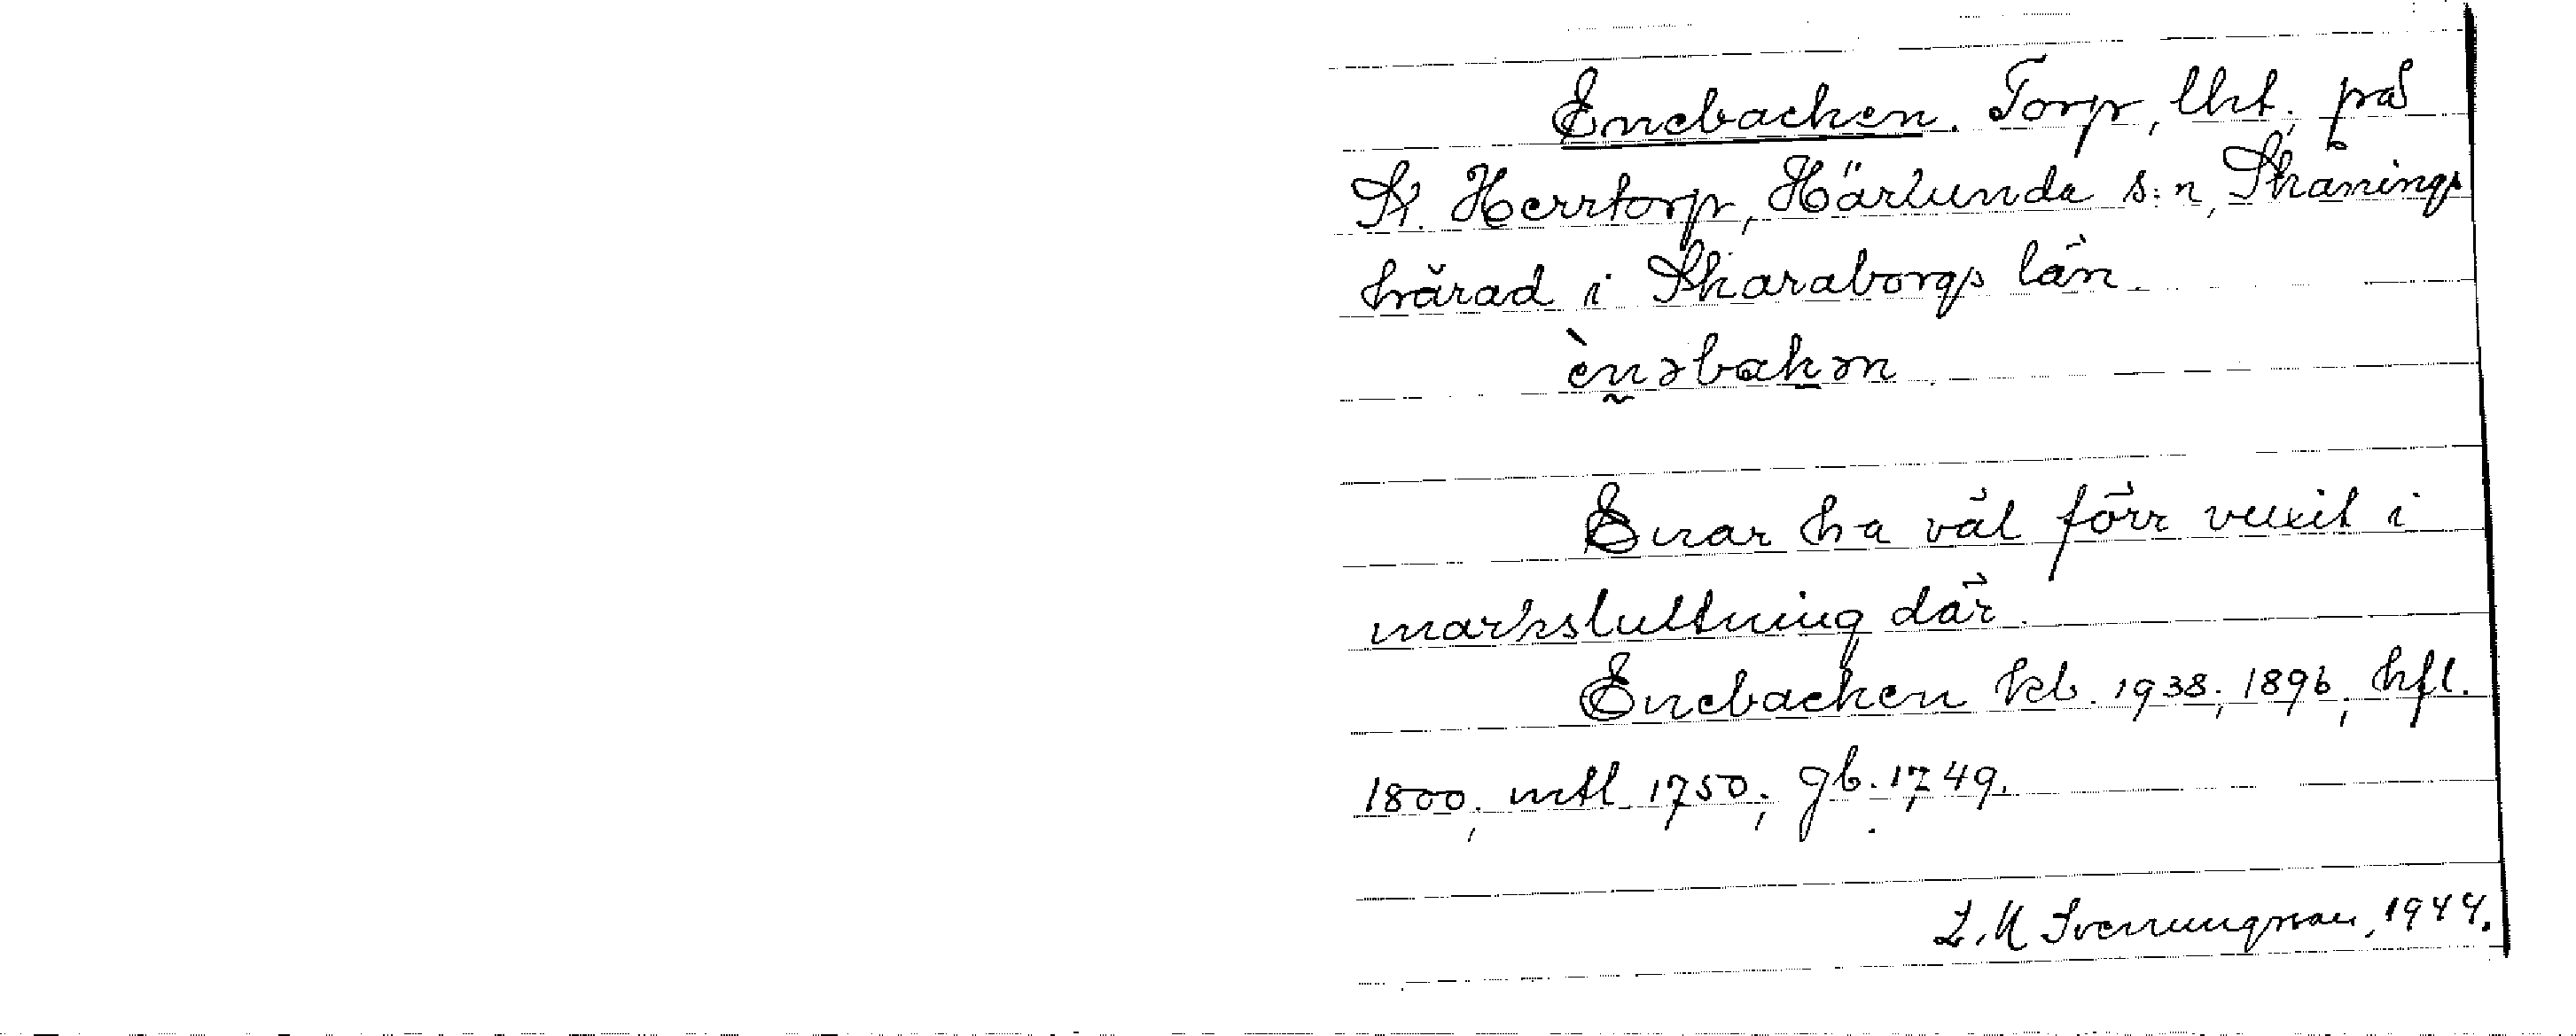 Enebacken. Torp, lht, på
St. Herrtorp, Härlunda s:n, Skånings
härad i Skaraborgs län.
ènəbakən
Enar ha väl förr vuxit i
marksluttning där.
Enebacken kb. 1938; 1896; hfl.
1800; mtl 1750; gb. 1749.
Svenungsson, 1944.